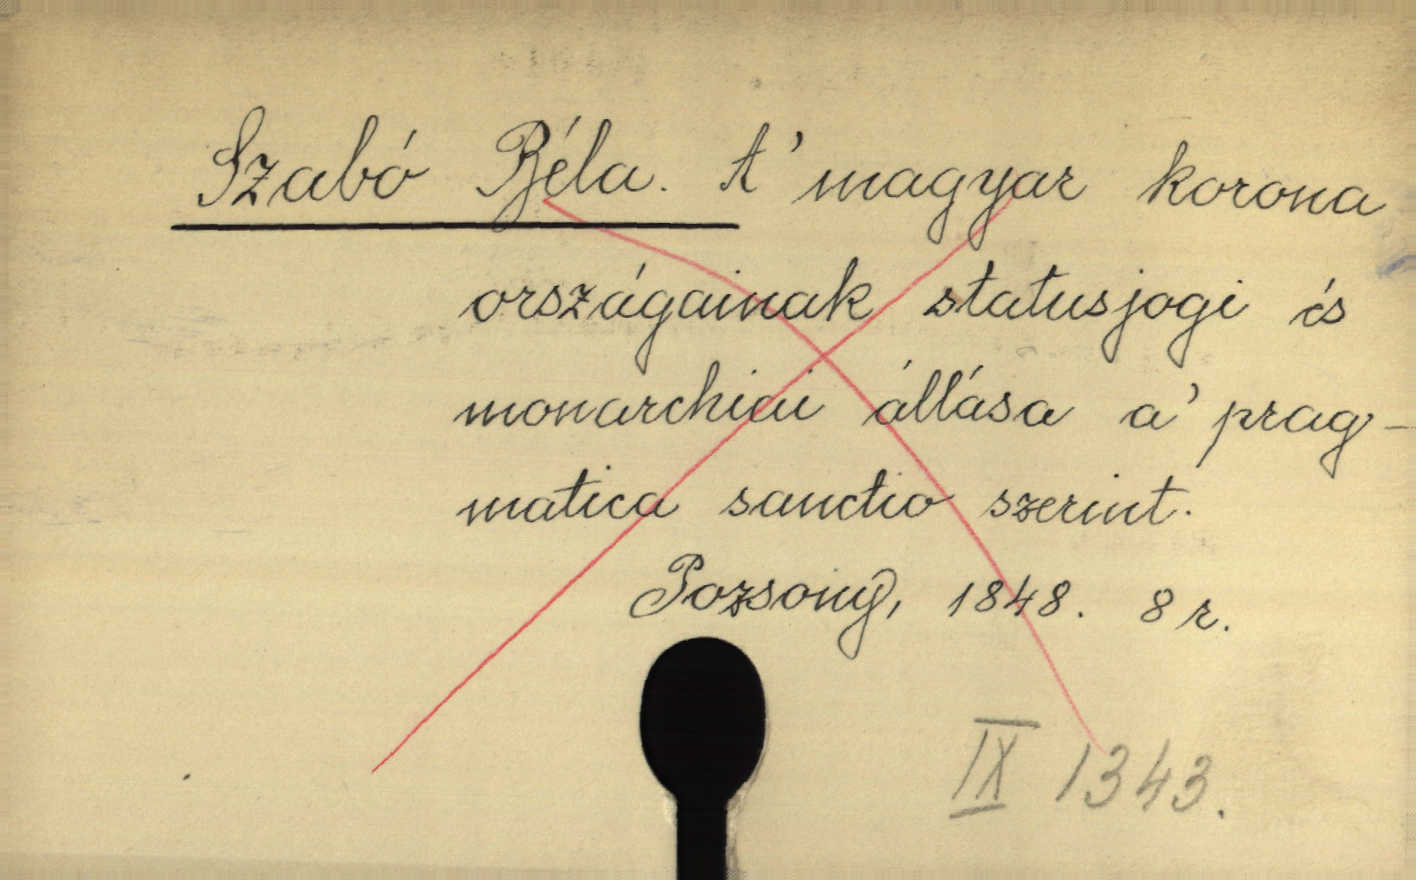 Szabó Béla. A' magyar korona
országainak statusjogi és
monarchiai állása a' prag-
matica sanctio szerint.
Pozsony, 1848. 8 r.
IX 1343.